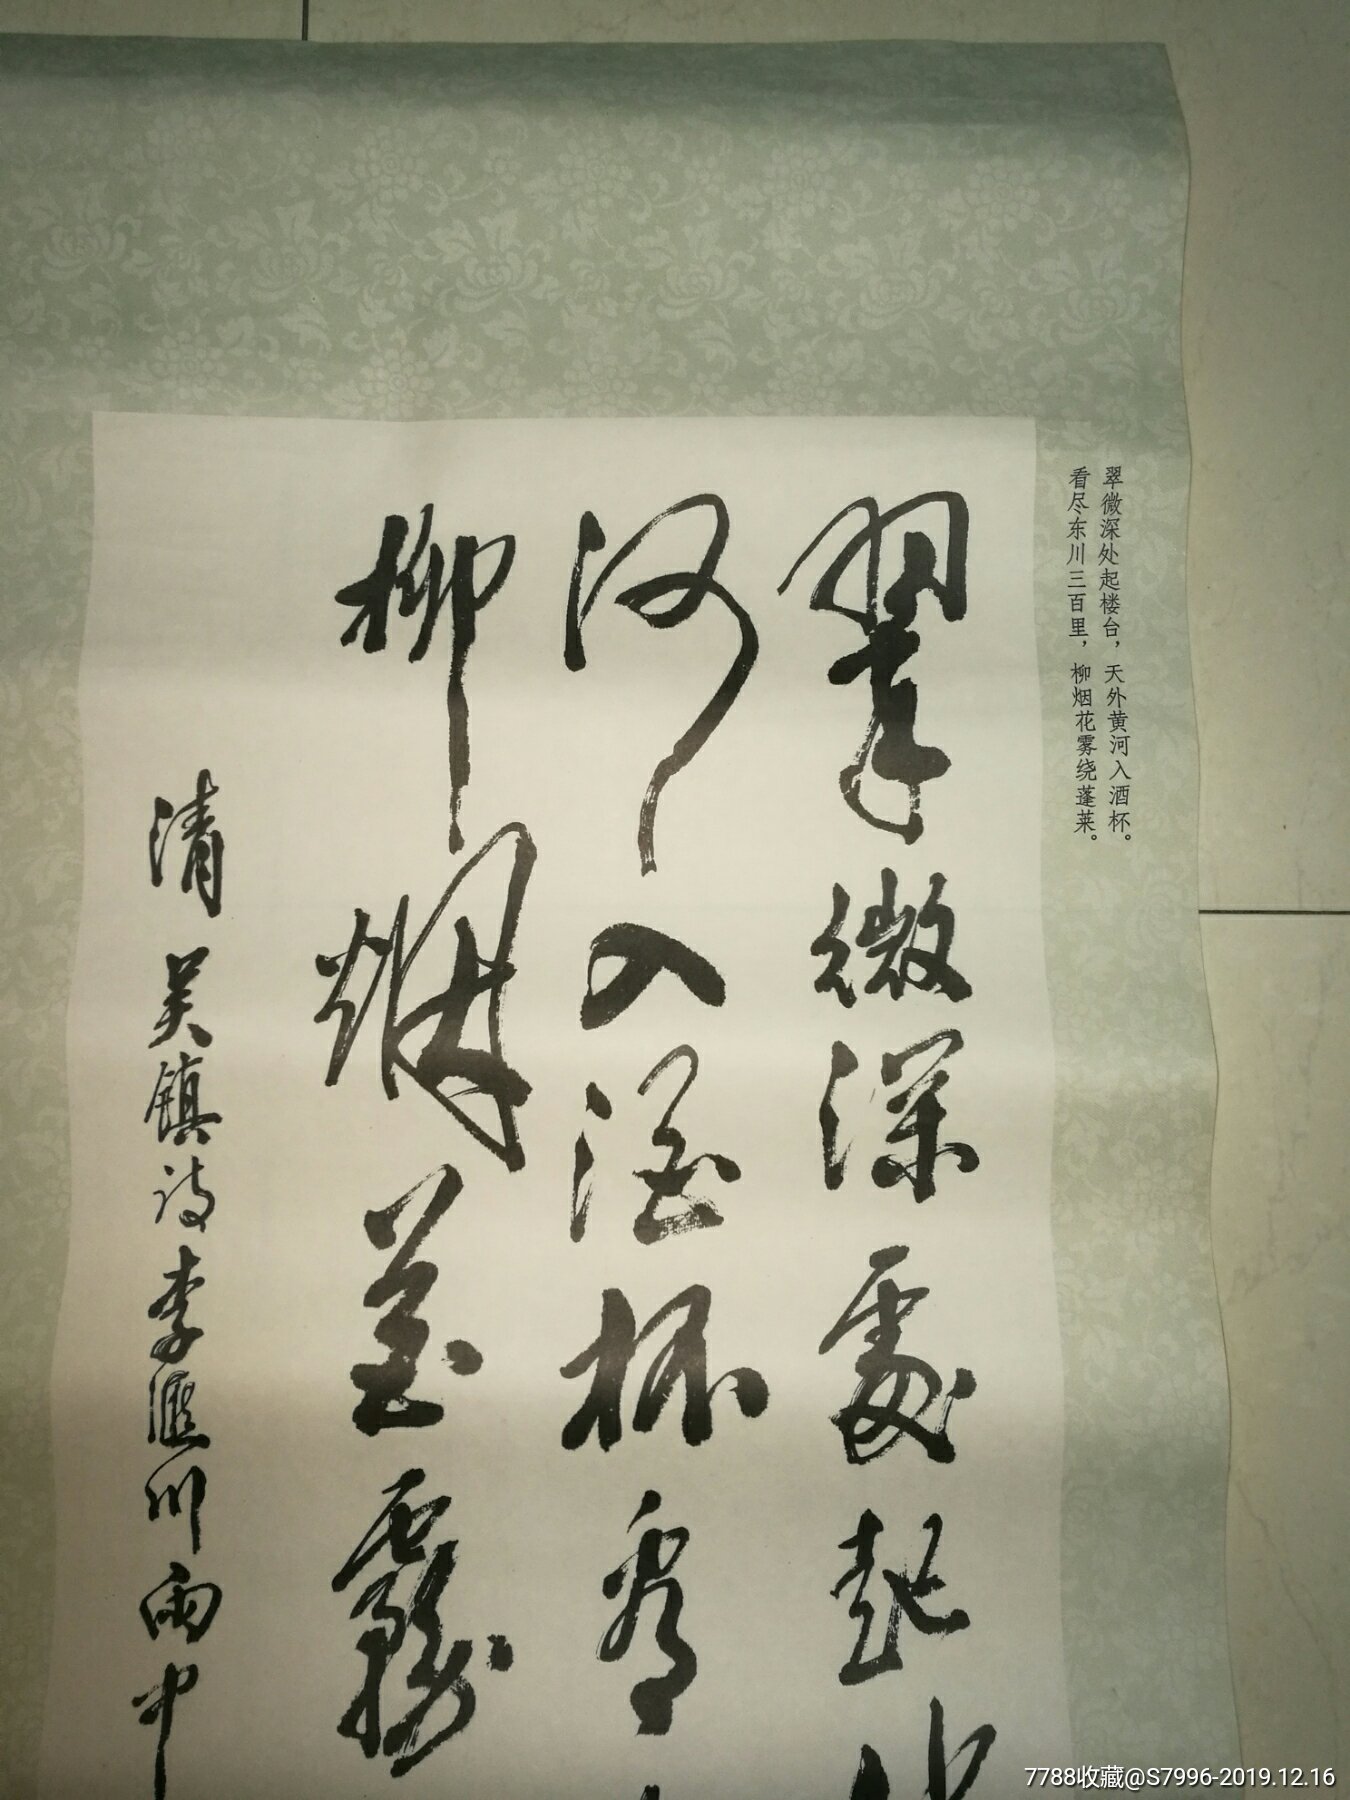 翠微深处起楼台，天外黄河入酒杯。
看尽东川三百里，柳烟花雾绕蓬莱。
翠微深處起
河入酒杯看
柳烟花霧
清吴镇诗李汇川雨中
7788收藏@S7996-2019.12.16